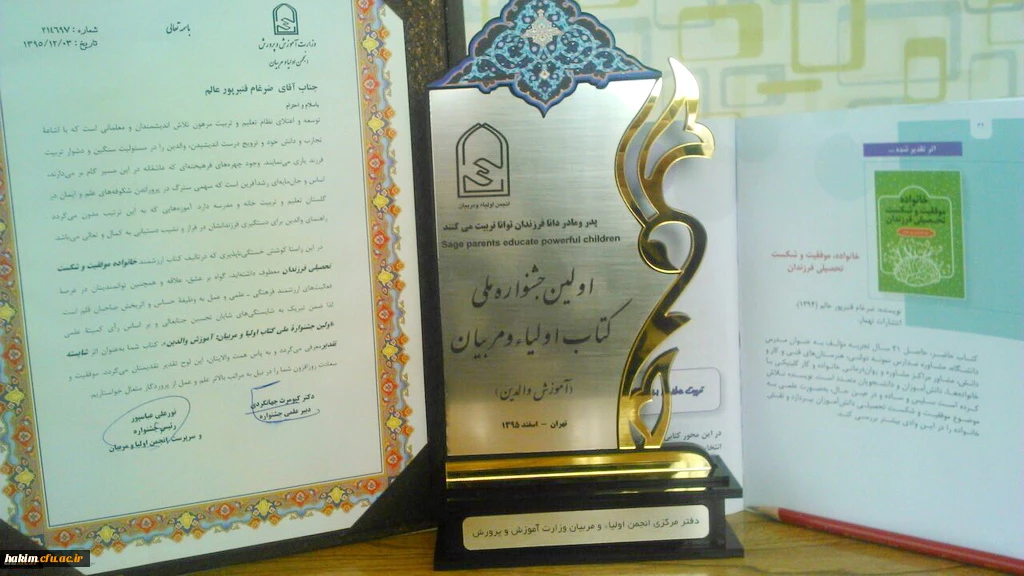 باسمه تعالی
وزارت آموزش و پرورش
انجمن اولیاء و مربیان
شماره : ۲۱۴۶۹۷
تاریخ : ۱۳۹۵/۱۲/۰۳
جناب آقای ضرغام قنبرپور عالم
باسلام و احترام
توسعه و اعتلای نظام تعلیم و تربیت مرهون تلاش اندیشمندان و معلمانی است که با اشاعهٔ
تجارب و دانش خود و ترویج درست اندیشیدن، والدین را در مسئولیت سنگین و دشوار تربیت
فرزند یاری می‌نمایند. وجود چهره‌های فرهیخته‌ای که عاشقانه در این مسیر گام بر می‌دارند،
اساس و جان‌مایه‌ای رشدآفرین است که سهمی سترگ در پروراندن شکوفه‌های علم و ایمان در
گلستان تعلیم و تربیت خانه و مدرسه دارد. آموزه‌هایی که به این ترتیب مدون می‌گردد
راهنمای والدین برای دستگیری فرزندانشان در فراز و نشیب دستیابی به کمال و تعالی می‌باشد.
در این راستا کوشش خستگی‌ناپذیری که درتالیف کتاب ارزشمند خانواده موفقیت و شکست
تحصیلی فرزندان معطوف داشته‌اید، گواه بر عشق، علاقه و همچنین توانمندیتان در عرصهٔ
فعالیت‌های ارزشمند فرهنگی ـ علمی و عمل به وظیفهٔ حساس و اثربخش صاحبان قلم است
لذا ضمن تبریک به شایستگی‌های شایان تحسین جنابعالی و بر اساس رأی کمیتهٔ علمی
«اولین جشنوارهٔ ملی کتاب اولیا و مربیان؛ آموزش والدین»، کتاب شما به‌عنوان اثر شایسته
تقدیر معرفی می‌گردد و به پاس همت والایتان، این لوح تقدیر تقدیمتان می‌گردد. موفقیت و
سعادت روزافزون شما را در نیل به مراتب بالاتر علم و عمل از پروردگار متعال خواستاریم.
دکتر کیومرث جهانگردی
دبیر علمی جشنواره
نورعلی عباسپور
رئیس جشنواره
و سرپرست انجمن اولیا و مربیان
انجمن اولیاء و مربیان
پدر ومادر دانا فرزندان توانا تربیت می کنند
Sage parents educate powerful children
اولین جشنواره ملی
کتاب اولیاء و مربیان
(آموزش والدین)
تهران - اسفند ۱۳۹۵
دفتر مرکزی انجمن اولیاء و مربیان وزارت آموزش و پرورش
در این محور کتابی
اثر تقدیر شده ...
خانواده
موفقیت و شکست
تحصیلی فرزندان
خانواده، موفقیت و شکست
تحصیلی فرزندان
نویسنده: ضرغام قنبرپور عالم (۱۳۹۴)
کتاب حاضر، حاصل ۲۱ سال تجربه مؤلف به عنوان مدرس
موضوع موفقیت و شکست تحصیلی دانش‌آموزان بپردازد و نقش
خانواده را در این وادی بیشتر بررسی کند.
hakim.cfu.ac.ir